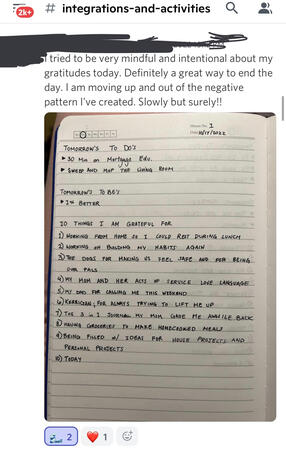 2k+
# integrations-and-activities
I tried to be very mindful and intentional about my
gratitudes today. Definitely a great way to end the
day. I am moving up and out of the negative
pattern I've created. Slowly but surely!!
1
Date 10/17/2022
TOMORROW'S TO DO'S
▸ 30 Min on Mortgage Edu.
▸ SWEEP AND MOP THE LIVING ROOM
TOMORROW'S TO BE'S
▸ 1% BETTER
10 THINGS I AM GRATEFUL FOR
1) WORKING FROM HOME SO I COULD REST DURING LUNCH
2) WORKING ON BUILDING MY HABITS AGAIN
3) THE DOGS FOR MAKING US FEEL SAFE AND FOR BEING
OUR PALS
4) MY MOM AND HER ACTS OF SERVICE LOVE LANGUAGE
5) MY DAD FOR CALLING ME THIS WEEKEND
6) KORRIGAN, FOR ALWAYS TRYING TO LIFT ME UP
7) THE 3 in 1 JOURNAL MY MOM GAVE ME AWHILE BACK
8) HAVING GROCERIES TO MAKE HOMECOOKED MEALS
9) BEING FILLED W/ IDEAS FOR HOUSE PROJECTS AND
PERSONAL PROJECTS
10) TODAY
2
1